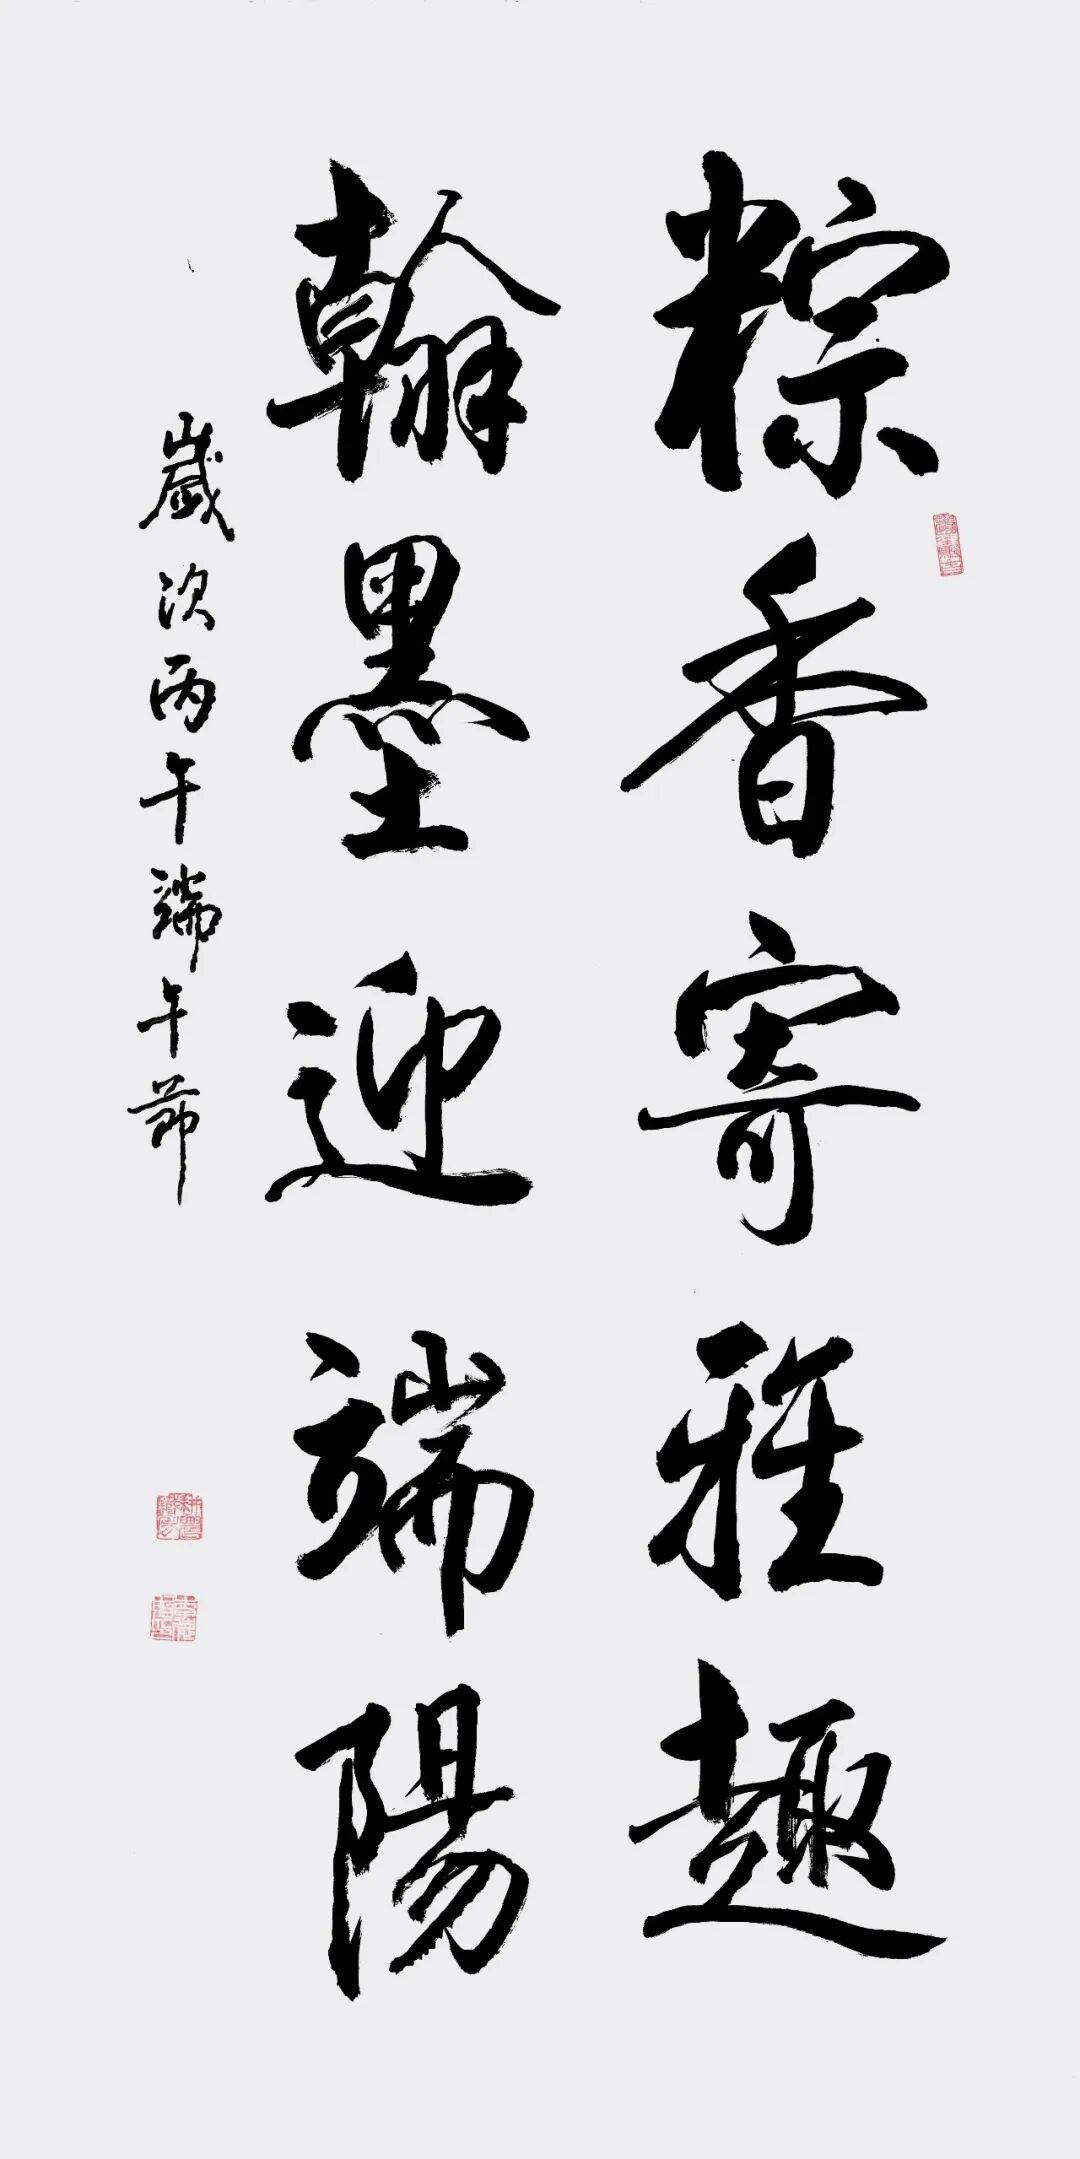 粽香寄雅趣
翰墨迎端陽
歲次丙午端午節